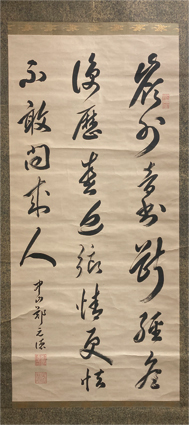 嶺外音書斷經冬
復歷春近鄉情更怯
不敢問來人
中山鄭元偉